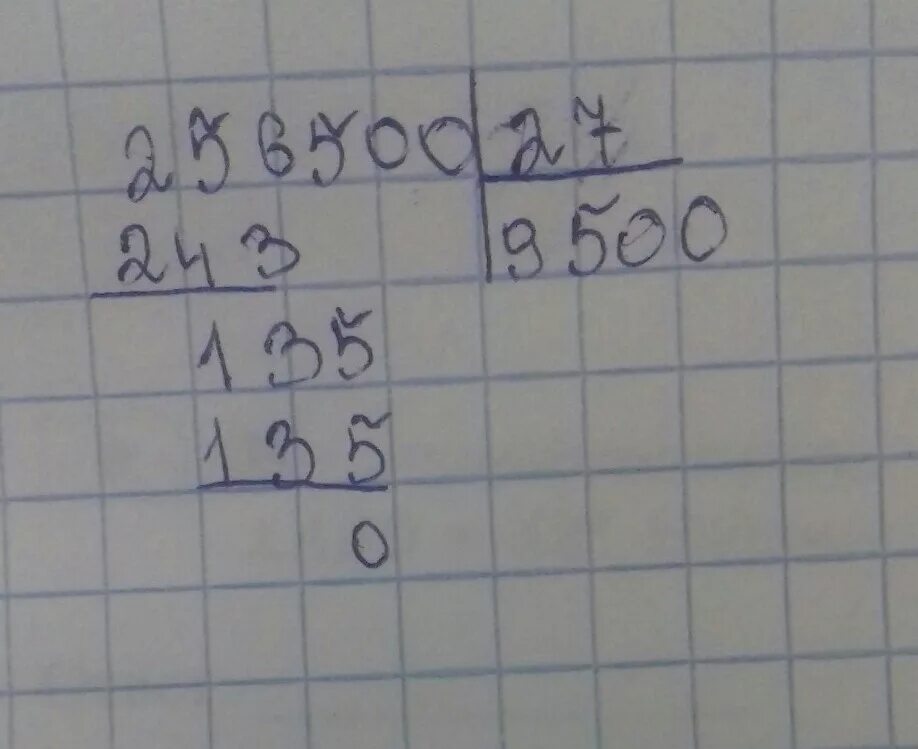 256500 27
243 9500
135
135
0